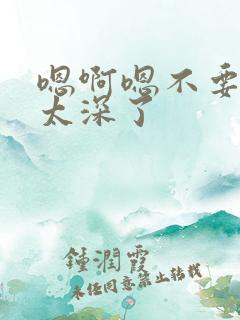 嗯啊嗯不要
太深了
鍾潤霞
未经同意禁止转载